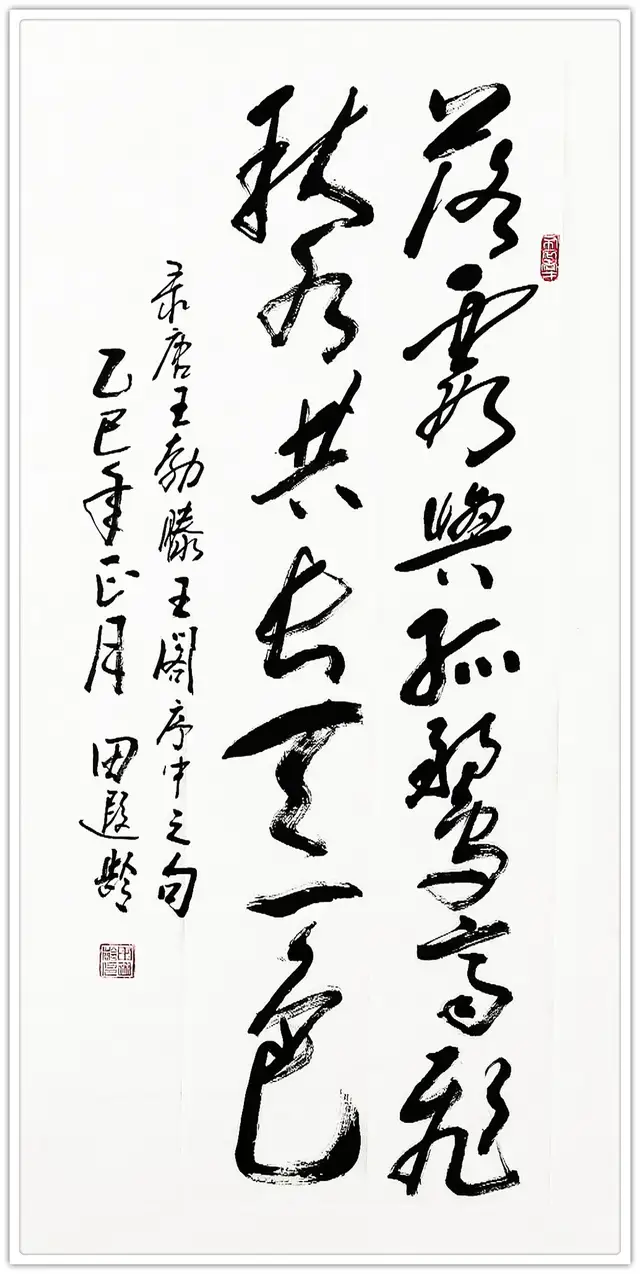 落霞與孤鶩齊飛
秋水共長天一色
录唐王勃滕王閣序中之句
乙巳年正月 田遐齡